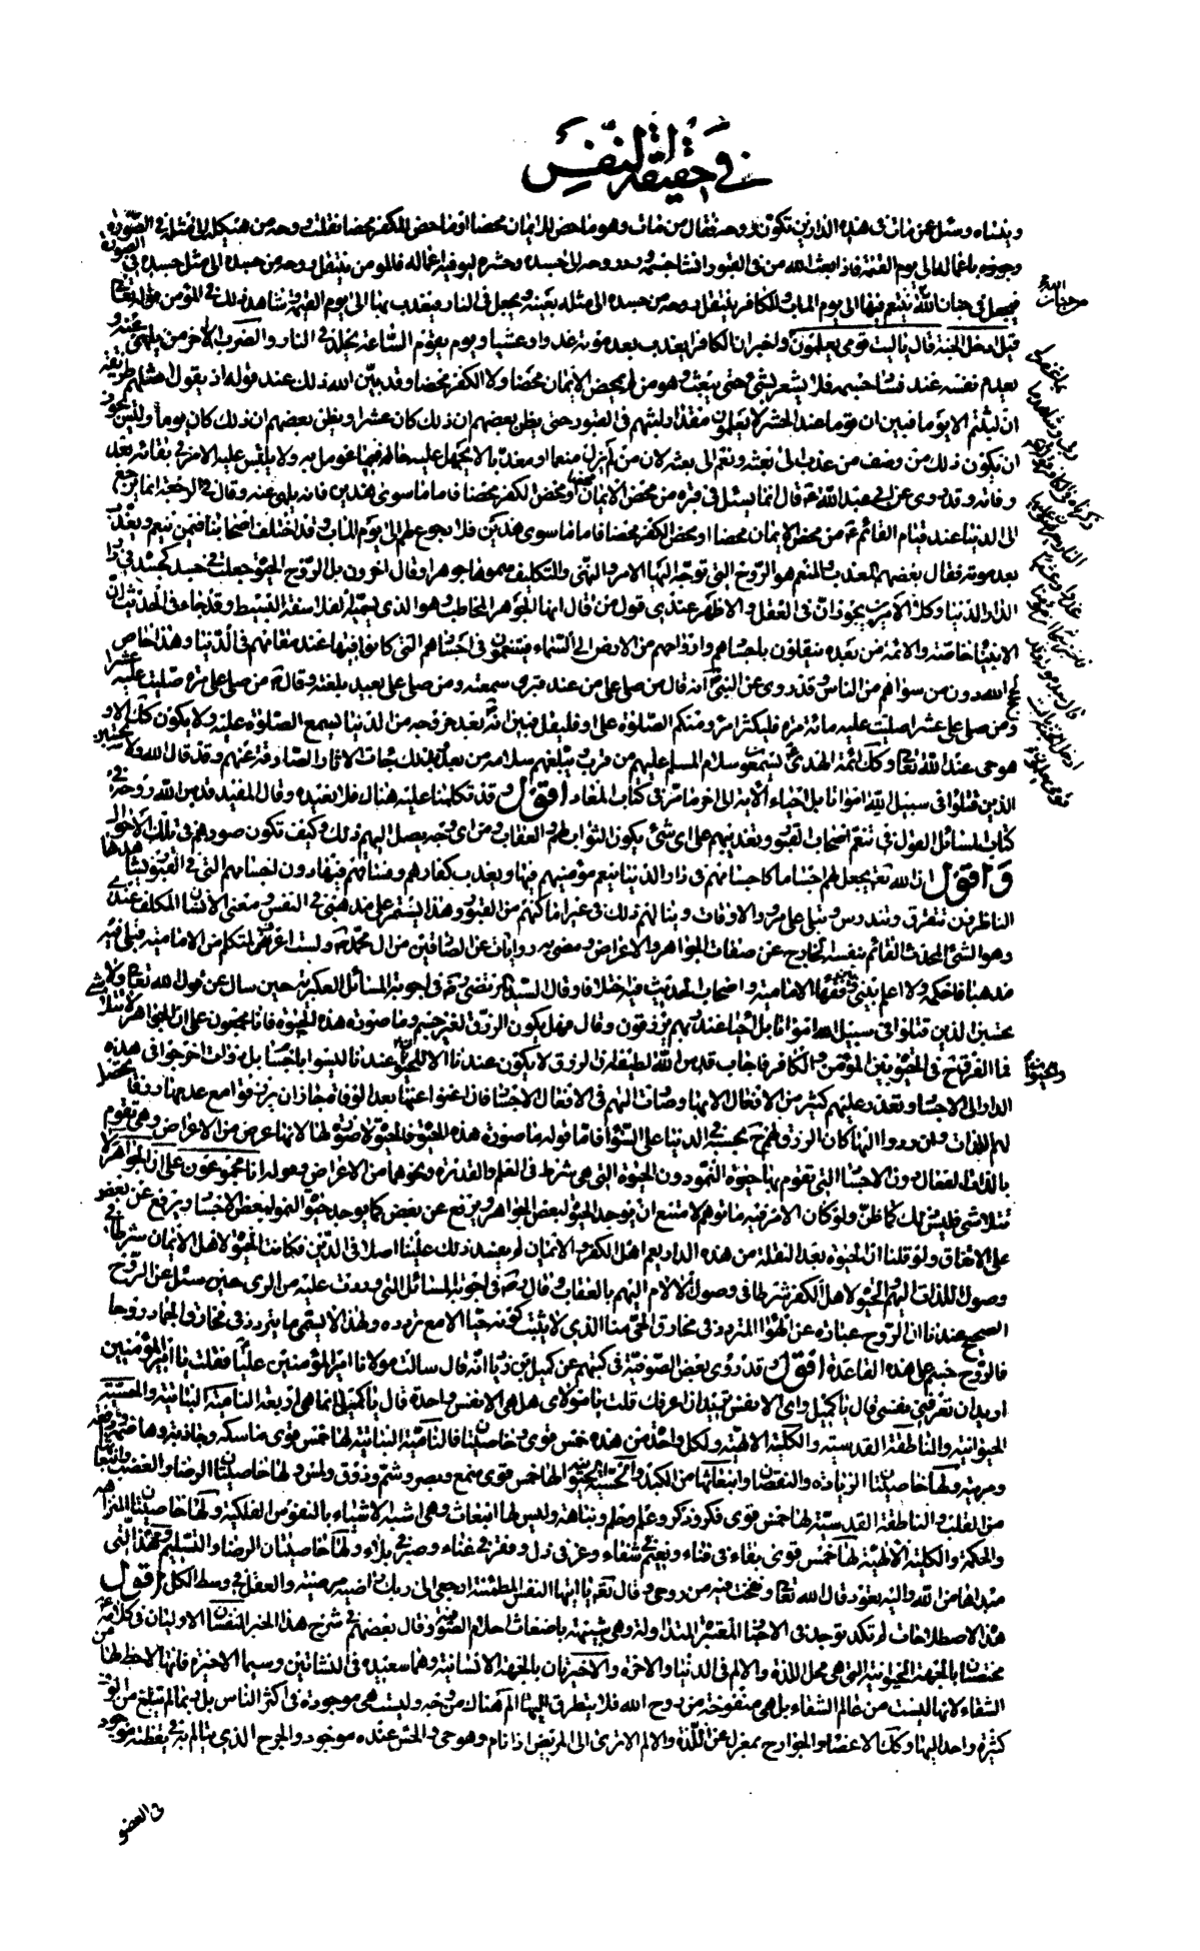 في حقيقة النفس
وبدنا وسئل عمن مات في هذه الدار اين تكون روحه فقال من مات وهو ماحض للايمان محضا او ماحض للكفر محضا نقلت روحه من هيكله الى مثله في الصورة
وجوزي باعماله الى يوم القيمة فاذا بعث الله من في القبور انشا جسمه ورد روحه الى جسده وحشره ليوفيه اعماله فالمؤمن ينتقل روحه من جسده الى مثل جسده في الصورة
فيجعل في جنان الله يتنعم فيها الى يوم الماب والكافر ينتقل روحه من جسده الى مثله بعينه ويجعل في النار فيعذب بها الى يوم القيمة وشاهد ذلك في المؤمن قوله تعالى
قيل ادخل الجنة قال يا ليت قومي يعلمون واخبر ان الكافر يعذب بعد موته غدوا وعشيا ويوم يقوم الساعة يخلد في النار والضرب الاخر من يلهى عنه و
يعدم نفسه عند فساد جسمه فلا يشعر بشيء حتى يبعث وهو من لم يمحض الايمان محضا ولا الكفر محضا وقد بين الله ذلك عند قوله اذ يقول امثلهم طريقة
ان لبثتم الا يوما فبين ان قوما عند الحشر لا يعلمون مقدار لبثهم في القبور حتى يظن بعضهم ان ذلك كان عشرا ويظن بعضهم ان ذلك كان يوما وليس يجوز
ان يكون ذلك من وصف من عذب الى بعثه ونعم الى بعثه لان من لم يزل منعما او معذبا لا يجهل عليه حاله فيما عومل به ولا يلتبس عليه الامر في بقائه بعد
وفاته وقد روي عن ابي عبد الله ع قال انما يسئل في قبره من محض الايمان محضا او محض الكفر محضا فاما ما سوى هذين فانه يلهى عنه وقال في الرجعة انما يرجع
الى الدنيا عند قيام القائم ع من محض الايمان محضا او محض الكفر محضا فاما ما سوى هذين فلا رجوع لهم الى يوم الماب وقد اختلف اصحابنا فيمن ينعم ويعذب
بعد موته فقال بعضهم المعذب والمنعم هو الروح التي توجه اليها الامر والنهي والتكليف سموها جوهرا وقال اخرون بل الروح الحيوة جعلت في جسد كجسده في دار
الدنيا وكلا الامرين يجوزان في العقل والاظهر عندي قول من قال انها الجوهر المخاطب وهو الذي يسميه الفلاسفة البسيط وقد جاء في الحديث ان
الانبياء خاصة والائمة من بعده ينقلون باجسادهم وارواحهم من الارض الى السماء فيتنعمون في اجسادهم التي كانوا فيها عند مقامهم في الدنيا وهذا خاص
لحجج الله دون من سواهم من الناس وقد روي عن النبي ص انه قال من صلى علي من عند قبري سمعته ومن صلى علي بعيد بلغته وقال ص من صلى علي مرة صليت عليه عشرا
ومن صلى علي عشرا صليت عليه مائة مرة فليكثر امرؤ منكم الصلوة علي او فليقل فبين انه بعد خروجه من الدنيا يسمع الصلوة عليه ولا يكون كك الا و
هو حي عند الله تعالى وكك ائمة الهدى ع يسمعون سلام المسلم عليهم من قرب ويبلغهم سلامه من بعد وبذلك جاءت الاثار الصادقة عنهم وقد قال الله ولا تحسبن
الذين قتلوا في سبيل الله امواتا بل احياء الاية الى اخر ما مر في كتاب المعاد اقول قد تكلمنا عليه هناك فلا نعيده وقال المفيد قدس الله روحه في
كتاب المسائل القول في تنعم اصحاب القبور وتعذيبهم على اي شيء يكون الثواب لهم والعقاب ومن اي وجه يصل اليهم ذلك وكيف تكون صورهم في تلك الاحوال
واقول ان الله تعالى يجعل لهم اجساما كاجسامهم في دار الدنيا ينعم مؤمنيهم فيها ويعذب كفارهم وفساقهم فيها دون اجسامهم التي في القبور يشاهدها
الناظرون تتفرق وتندرس وتبلى على مرور الاوقات وينالهم ذلك في غير اماكنهم من القبور وهذا يستمر على مذهبي في النفس ومعنى الانسان المكلف عندي
وهو الشيء المحدث القائم بنفسه الخارج عن صفات الجواهر والاعراض ومضى به روايات عن الصادقين من ال محمد ص ولست اعرف لمتكلم من الامامية قبلي فيه
مذهبا فاحكيه ولا اعلم بيني وبين فقهاء الامامية واصحاب الحديث فيه اختلافا وقال السيد المرتضى ره في اجوبة المسائل العكبرية حين سال عن قول الله تعالى ولا
تحسبن الذين قتلوا في سبيل الله امواتا بل احياء عند ربهم يرزقون وقال فهل يكون الرزق لغير جسم وما صورة هذه الحيوة فانا مجمعون على ان الجواهر لا تتلاشى
فما الفرق ح في الحيوة بين المؤمن والكافر فاجاب قدس الله لطيفه الرزق لا يكون عندنا الا للحيوان عندنا ليسوا باجسام بل ذوات اخرجوا في هذه
الدار الى الاجساد وتعذر عليهم كثير من الافعال الا بها وصارت الهم في الافعال الاجساد فان اغنوا عنها بعد الوفاة جاز ان يرزقوا مع عدمها رزقا يحصل
لهم اللذات وان ردوا اليها كان الرزق لهم ح بحسبه في الدنيا على السواء فاما قوله ما صورة هذه الحيوة فالحيوة لا صورة لها لانها عرض من الاعراض وهي تقوم
بالذات الفعال دون الاجساد التي تقوم بها حيوة النمو دون الحيوة التي هي شرط في العلم والقدرة ونحوهما من الاعراض وقوله انا مجمعون على ان الجواهر لا
تتلاشى فليس ذلك كما ظن ولو كان الامر فيه ما توهم لامتنع ان يوجد الحيوة لبعض الجواهر ويرتفع عن بعض كما يوجد حيوة النمو لبعض الاجساد ويرتفع عن بعض
على الاتفاق ولو قلنا ان الحيوة بعد النقلة من هذه الدار يعم اهل الكفر والايمان لم يفسد ذلك علينا اصلا في الدين فكانت الحيوة لاهل الايمان شرطا في
وصول اللذات اليهم والحيوة لاهل الكفر شرطا في وصول الالام اليهم بالعقاب وقال ره في اجوبة المسائل التي وردت عليه من الري حين سئل عن الروح
الصحيح عندنا ان الروح عبارة عن الهواء المتردد في مخارق الحي منا الذي لا يثبت كونه حيا الا مع تردده ولهذا لا يسمى ما يتردد في مخارق الجماد روحا
فالروح جسم على هذه القاعدة اقول وقد روى بعض الصوفية في كتبهم عن كميل بن زياد انه قال سالت مولانا امير المؤمنين عليا فقلت يا امير المؤمنين
اريد ان تعرفني نفسي قال يا كميل واي الانفس تريد ان اعرفك قلت يا مولاي هل هي الا نفس واحدة قال يا كميل انما هي اربعة النامية النباتية والحسية
الحيوانية والناطقة القدسية والكلية الالهية ولكل واحدة من هذه خمس قوى وخاصيتان فالنامية النباتية لها خمس قوى ماسكة وجاذبة وهاضمة ودافعة
ومربية ولها خاصيتان الزيادة والنقصان وانبعاثها من الكبد والحسية الحيوانية لها خمس قوى سمع وبصر وشم وذوق ولمس ولها خاصيتان الرضا والغضب وانبعاثها
من القلب والناطقة القدسية لها خمس قوى فكر وذكر وعلم وحلم ونباهة وليس لها انبعاث وهي اشبه الاشياء بالنفوس الفلكية ولها خاصيتان النزاهة
والحكمة والكلية الالهية لها خمس قوى بقاء في فناء ونعيم في شقاء وعز في ذل وفقر في غناء وصبر في بلاء ولها خاصيتان الرضا والتسليم وهذه التي
مبداها من الله واليه تعود قال الله تعالى ونفخت فيه من روحي وقال تعالى يا ايتها النفس المطمئنة ارجعي الى ربك راضية مرضية والعقل في وسط الكل اقول
هذه الاصطلاحات لم تكد توجد في الاخبار المعتبرة المتداولة وهي شبيهة باضغاث احلام الصوفية وقال بعضهم في شرح هذا الخبر النفسان الاوليان في كلامه ع
مختصان بالجهة الحيوانية التي هي محل اللذة والالم في الدنيا والاخرة والاخيرتان بالجهة الانسانية وهما سعيدة في النشاتين وسيما الاخيرة فانها لا حظ لها من
الشقاء لانها ليست من عالم الشقاء بل هي منفوخة من روح الله فلا يتطرق اليها الم هناك من وجه وليست هي موجودة في اكثر الناس بل ربما لم تبلغ من الوف
كثيرة واحد اليها وكك الاعضاء والجوارح بمعزل عن اللذة والالم الا ترى الى المريض اذا نام وهو حي والحس عنده موجود والجرح الذي يتالم به في يقظته موجود
في العضو